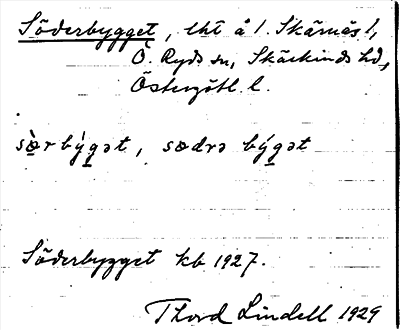 Söderbygget, lht å 1. Skärnäs 1,
Ö. Ryds sn, Skärkinds hd,
Östergötl. l.
sø̀rbýgət, sødrə býgət
Söderbygget kb 1927.
Thord Lindell 1929